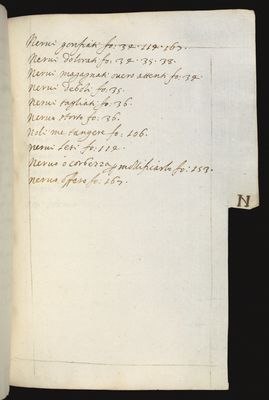 Nerui gonfiati fo: 34. 114. 167.
Nerui dolorati fo: 34. 35. 38.
Nerui magagnati ouero attenti fo: 34.
Nerui deboli fo: 35.
Nerui tagliati fo: 36.
Neruo storto fo: 36.
Noli me tangere fo: 106.
nerui leri fo: 114.
Neruo ò corbezza p mollificarlo fo: 153.
neruo offeso fo: 167.
N